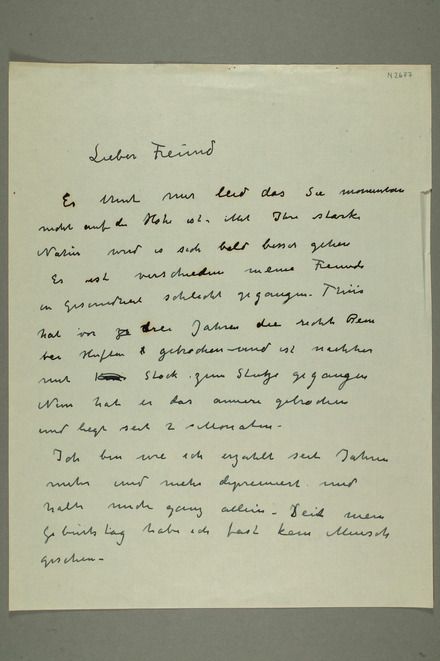 N 2677
Lieber Freund
Es thut mir leid das Sie momentan
nicht auf der Höhe ist. Mit Ihre starke
Natur wird es sich bald besser gehen
Es ist verschieden meine Freunde
in Gesundheit schlecht gegangen. Triis
hat vor drei Jahren die rechte Bein
bei Hüften gebrochen und ist nachher
mit Stock zum Stütze gegangen
Nun hat er das annere gebrochen
und liegt seit 2 Monaten.
Ich bin wie ich erzahlt seit Jahren
mehr und mehr deprimiert und
halte mich ganz allein. Seit mein
Geburtstag habe ich fast kein Mensch
gesehen.